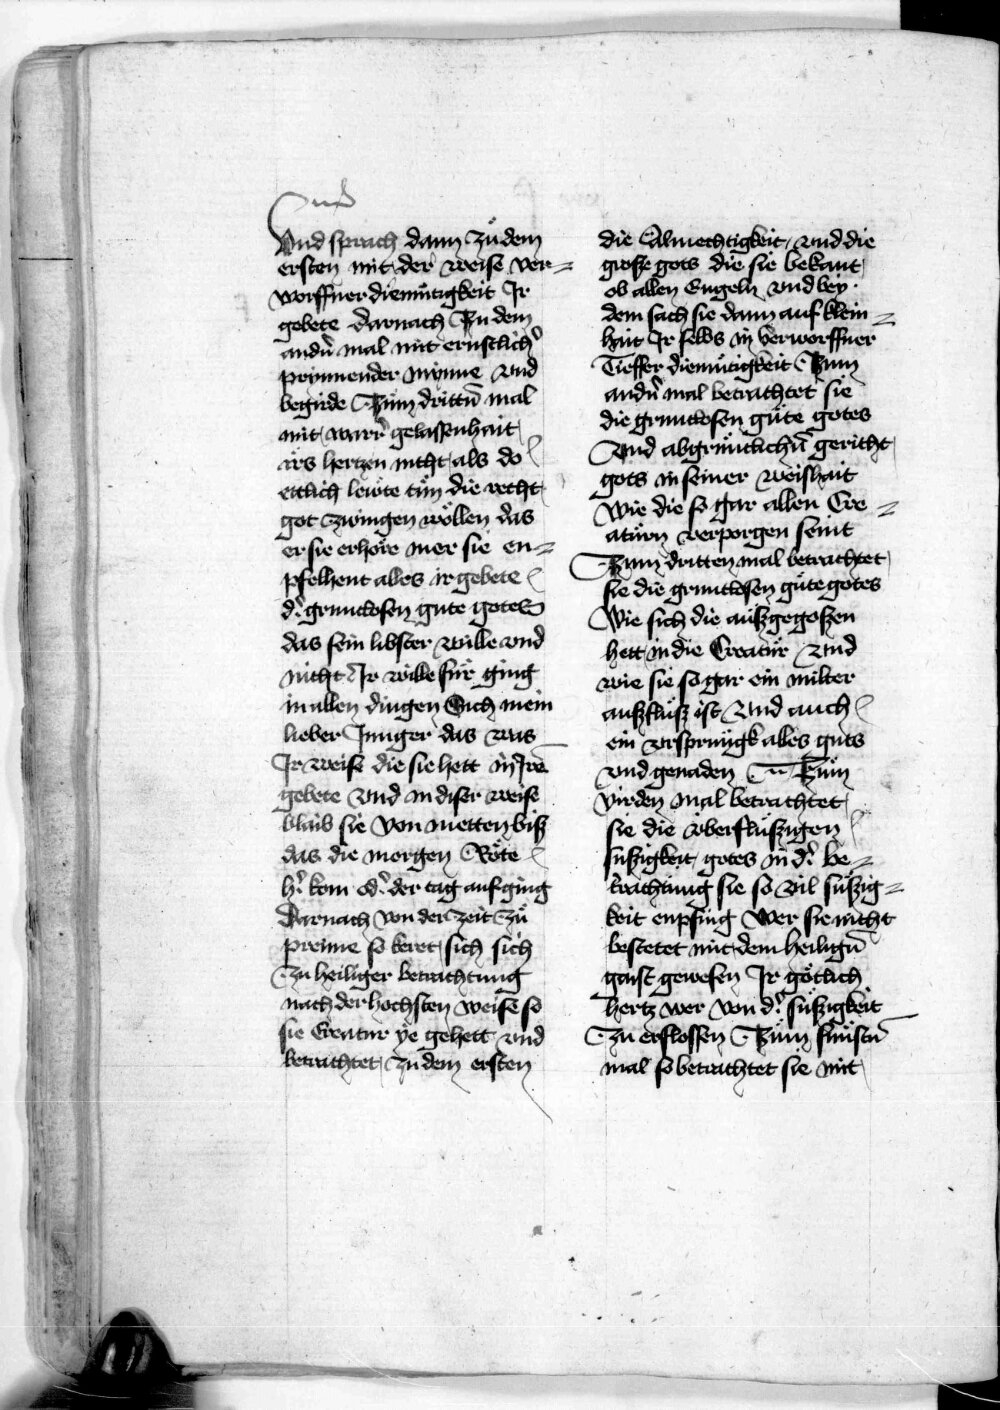 Und sprach dann zu dem
ersten mit der weise ver=
worffner diemütigkeit Ir
gebete darnach Zu dem
andn̄ mal mit ernstlich̾
prinnender mynne Vnd
begirde Zum drittn̄ mal
mit warr̾ gelassenhait
irs hertzen nicht als do
ettlich lewte tün die recht
got zwingen wöllen das
er sie erhöre mer sie en=
pfelhent alles ir gebete
d̾ gruntlosen gute gotes
das sein libster wille vnd
nicht Ir wille für ging
in allen dingen Sich mein
lieber Junger das was
Ir weise die sie hett in Irē
gebete Vnd in diser weise
blaib sie von metten biß
das die morgen Röte
h̾ kom od̾ der tag auf ging
Darnach von der zeit zü
preime so keret sich sich
Zu heiliger betrachtung
nach der hochsten weise so
sie Creatur ye gehett vnd
betrachtet zu dem ersten
die Almechtigkeit vnd die
große gots die sie bekant
ob allen Engeln vnd bey
dem sach sie dann auf klein=
hait Ir selbs in verworffner
Tieffer diemütigkeit Zum
andn̄ mal betrachtet sie
die gruntlosen güte gotes
Vnd abgrüntlichn̄ gericht
gots in seiner weishait
wie die so gar allen Cre=
atürn verporgen seint
Zum dritten mal betrachtet
sie die gruntlosen güte gotes
Wie sich die außgegoßen
hett in die Creatür Vnd
wie sie so gar ein milter
außfluß ist Vnd auch
ein vrsprungk alles guts
vnd genaden Züm
virden mal betrachtet
sie die überflüßzigen
süßigkeit gotes in d̾ be=
trachtung sie so vil süßig=
keit enpfing Wer sie nicht
bestetet mit dem heilign̄
gaist gewesen Ir götlich
hertz wer von d̾ süßigkeit
Zu erflossen Züm fünftn̄
mal so betrachtet sie mit